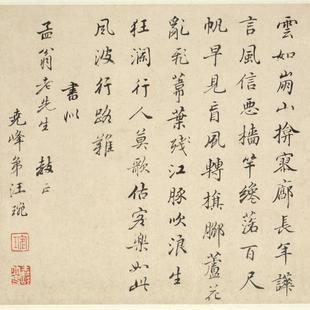 雲如崩山揜寥廓長年譁
言風信惡檣竿纔落百尺
帆早見盲風轉旗腳蘆花
亂飛葦葉殘江豚吹浪生
狂瀾行人莫歌估客樂如此
風波行路難
書似
孟翁老先生 教正
堯峰弟汪琬